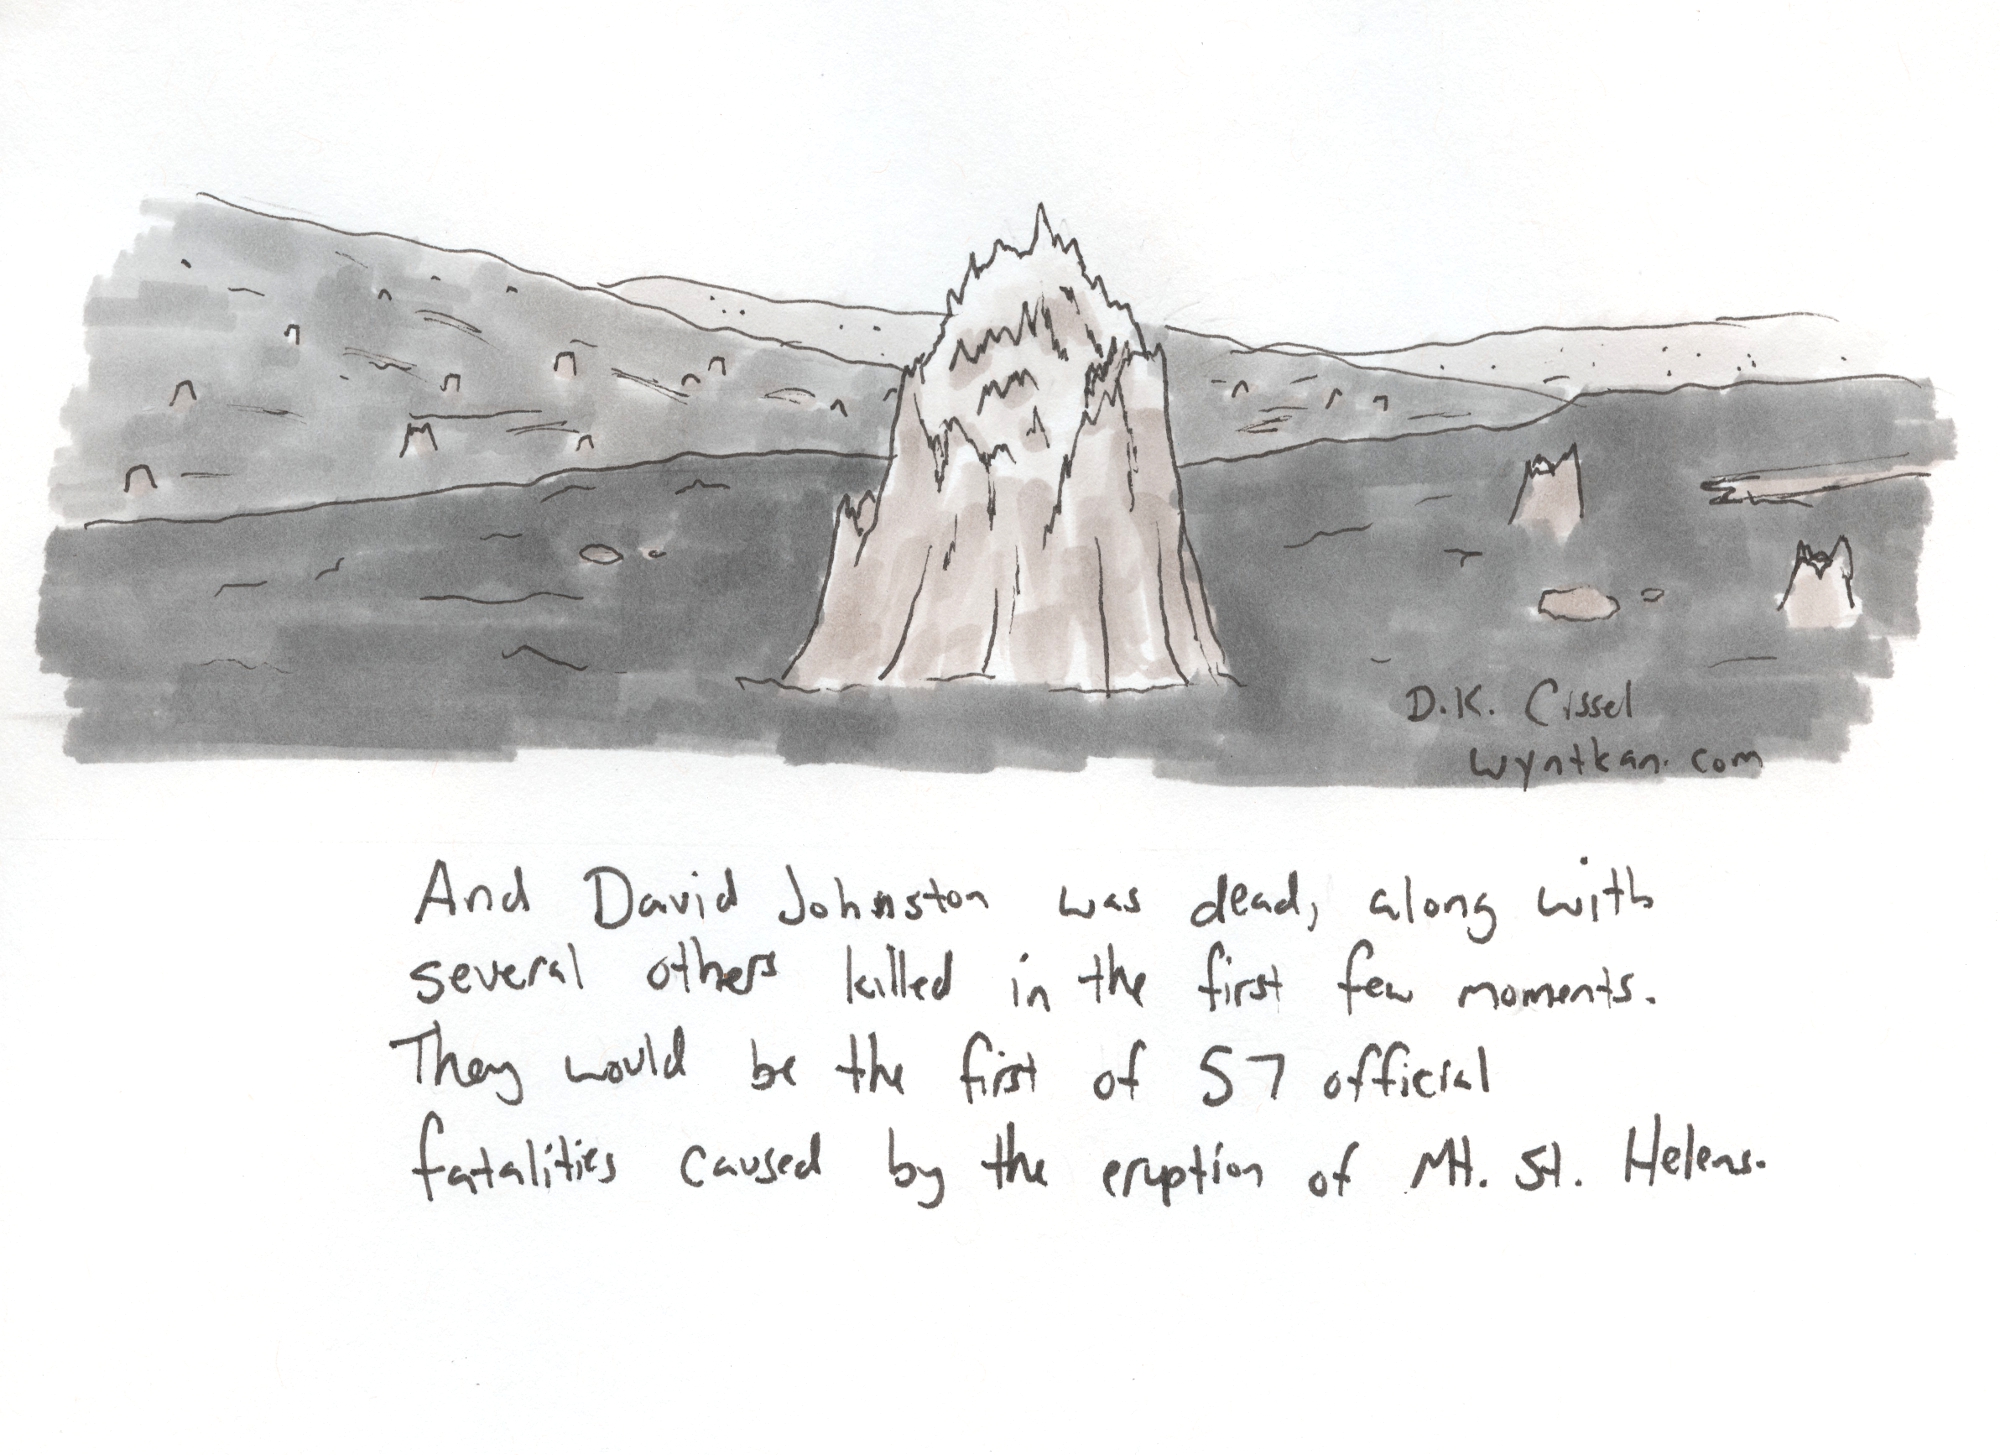 D.K. Cissel
wyntkan.com
And David Johnston was dead, along with
several others killed in the first few moments.
They would be the first of 57 official
fatalities caused by the eruption of Mt. St. Helens.